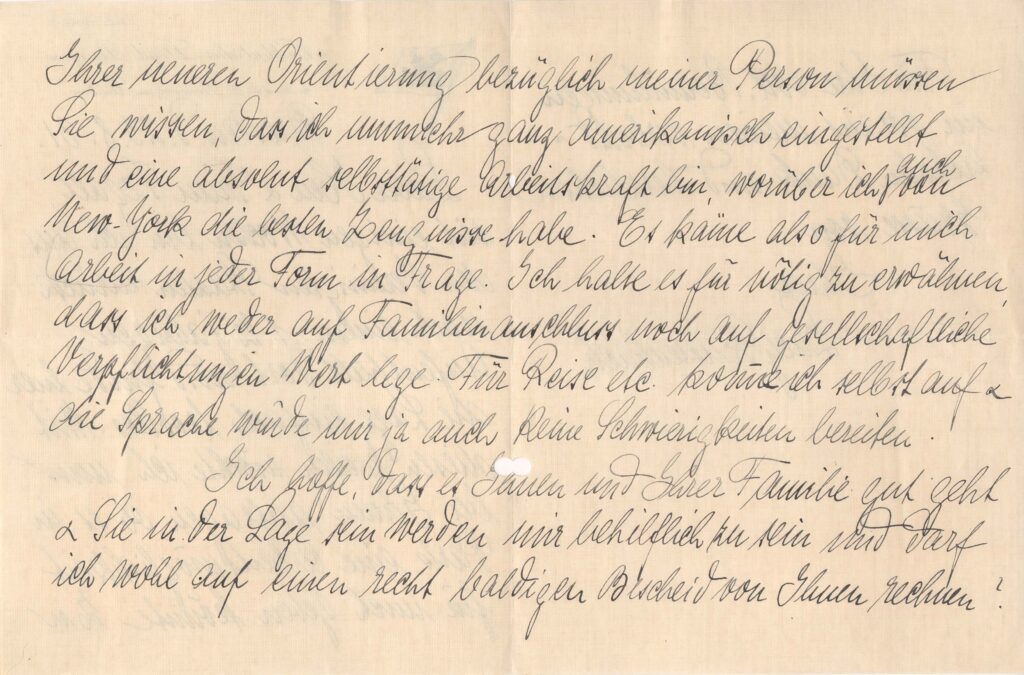 Ihrer neueren Orientierung bezüglich meiner Person müssen
Sie wissen, dass ich nunmehr ganz amerikanisch eingestellt
und eine absolut selbsttätige Arbeitskraft bin, worüber ich auch von
New-York die besten Zeugnisse habe. Es käme also für mich
Arbeit in jeder Form in Frage. Ich halte es für nötig zu erwähnen,
dass ich weder auf Familienanschluss noch auf gesellschaftliche
Verpflichtungen Wert lege. Für Reise etc. kom̄e ich selbst auf &
die Sprache würde mir ja auch keine Schwierigkeiten bereiten.
Ich hoffe, dass es Ihnen und Ihrer Familie gut geht
& Sie in der Lage sein werden mir behilflich zu sein und darf
ich wohl auf einen recht baldigen Bescheid von Ihnen rechnen?